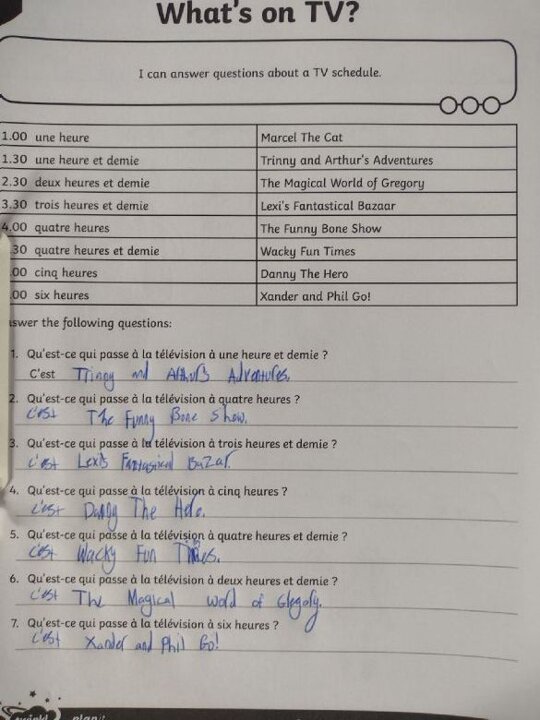 What's on TV?
I can answer questions about a TV schedule.
1.00 une heure Marcel The Cat
1.30 une heure et demie Trinny and Arthur's Adventures
2.30 deux heures et demie The Magical World of Gregory
3.30 trois heures et demie Lexi's Fantastical Bazaar
4.00 quatre heures The Funny Bone Show
.30 quatre heures et demie Wacky Fun Times
.00 cinq heures Danny The Hero
.00 six heures Xander and Phil Go!
swer the following questions:
1. Qu'est-ce qui passe à la télévision à une heure et demie ?
C'est Trinny and Arthur's Adventures.
2. Qu'est-ce qui passe à la télévision à quatre heures ?
c'est The Funny Bone Show.
3. Qu'est-ce qui passe à la télévision à trois heures et demie ?
c'est Lexi's Fantasical Bazar.
4. Qu'est-ce qui passe à la télévision à cinq heures ?
c'est Danny The Hero.
5. Qu'est-ce qui passe à la télévision à quatre heures et demie ?
c'est Wacky Fun Times.
6. Qu'est-ce qui passe à la télévision à deux heures et demie ?
c'est The Magical word of Gregory.
7. Qu'est-ce qui passe à la télévision à six heures ?
c'est Xander and Phil Go!